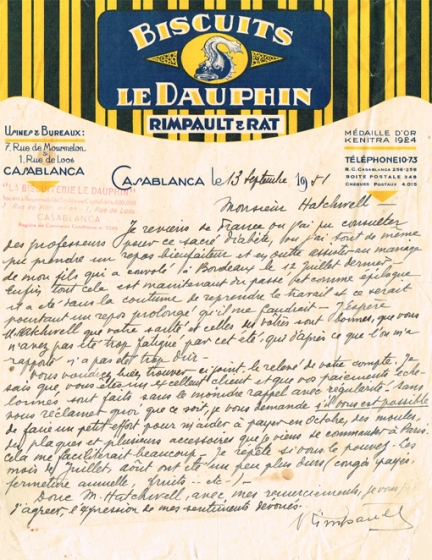 BISCUITS
LE DAUPHIN
RIMPAULT & RAT
USINES & BUREAUX:
7, Rue de Mourmelon
& 1, Rue de Loos
CASABLANCA
MÉDAILLE D'OR
KENITRA 1924
TÉLÉPHONE 10-73
R.C. CASABLANCA 256-256
BOITE POSTALE 348
CHEQUES POSTAUX 4.015
"LA BISCUITERIE LE DAUPHIN"
CASABLANCA
CASABLANCA le 13 septembre 1951
Monsieur Hatchwell -
Je reviens de France ou j'ai pu consulter
des professeurs pour ce sacré diabète, bon j'ai tout de même
pu prendre un repos bienfaiteur et en outre assister au mariage
de mon fils qui a convolé à Bordeaux le 12 Juillet dernier -
Enfin tout cela est maintenant du passé et comme épilogue
il a été dans la coutume de reprendre le travail et ce serait
pourtant un repos prolongé qu'il me faudrait - J'espère
M. Hatchwell que votre santé et celles des vôtres sont bonnes, que vous
n'avez pas été trop fatigué par cet été, qui d'après ce que l'on m'a
rapporté n'a pas été trop dur -
Vous voudrez bien trouver ci joint le relevé de votre compte. Je
sais que vous êtes un excellent client et que vos paiements éche-
lonnés sont faits sans le moindre rappel avec régularité - Sans
vous réclamer quoi que ce soit, je vous demande s'il vous est possible
de faire un petit effort pour m'aider à payer en Octobre, des moules,
des plaques et plusieurs accessoires que je viens de commander à Paris.
Cela me faciliterait beaucoup - Je répète si vous le pouvez - Les
mois de Juillet, août ont été un peu plus durs (congés payés
fermeture annuelle, fruits - etc -) -
Donc M. Hatchwell, avec mes remerciements, je vous prie
d'agréer l'expression de mes sentiments dévoués.
Rimpault